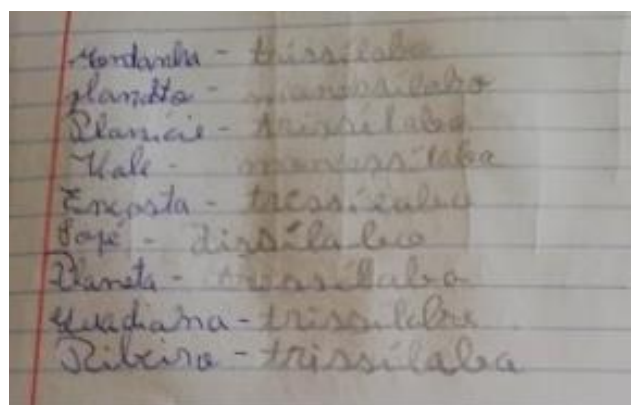 Montanha - trissílabo
planalto - monossílabo
Planície - trissílabo
Vale - monossílabo
Encosta - trissílabo
Sopé - dissílabo
Planeta - trissílabo
Guadiana - trissílabo
Ribeira - trissílaba